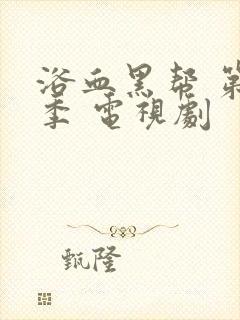 浴血黑帮 第
季 電視劇
甄隆